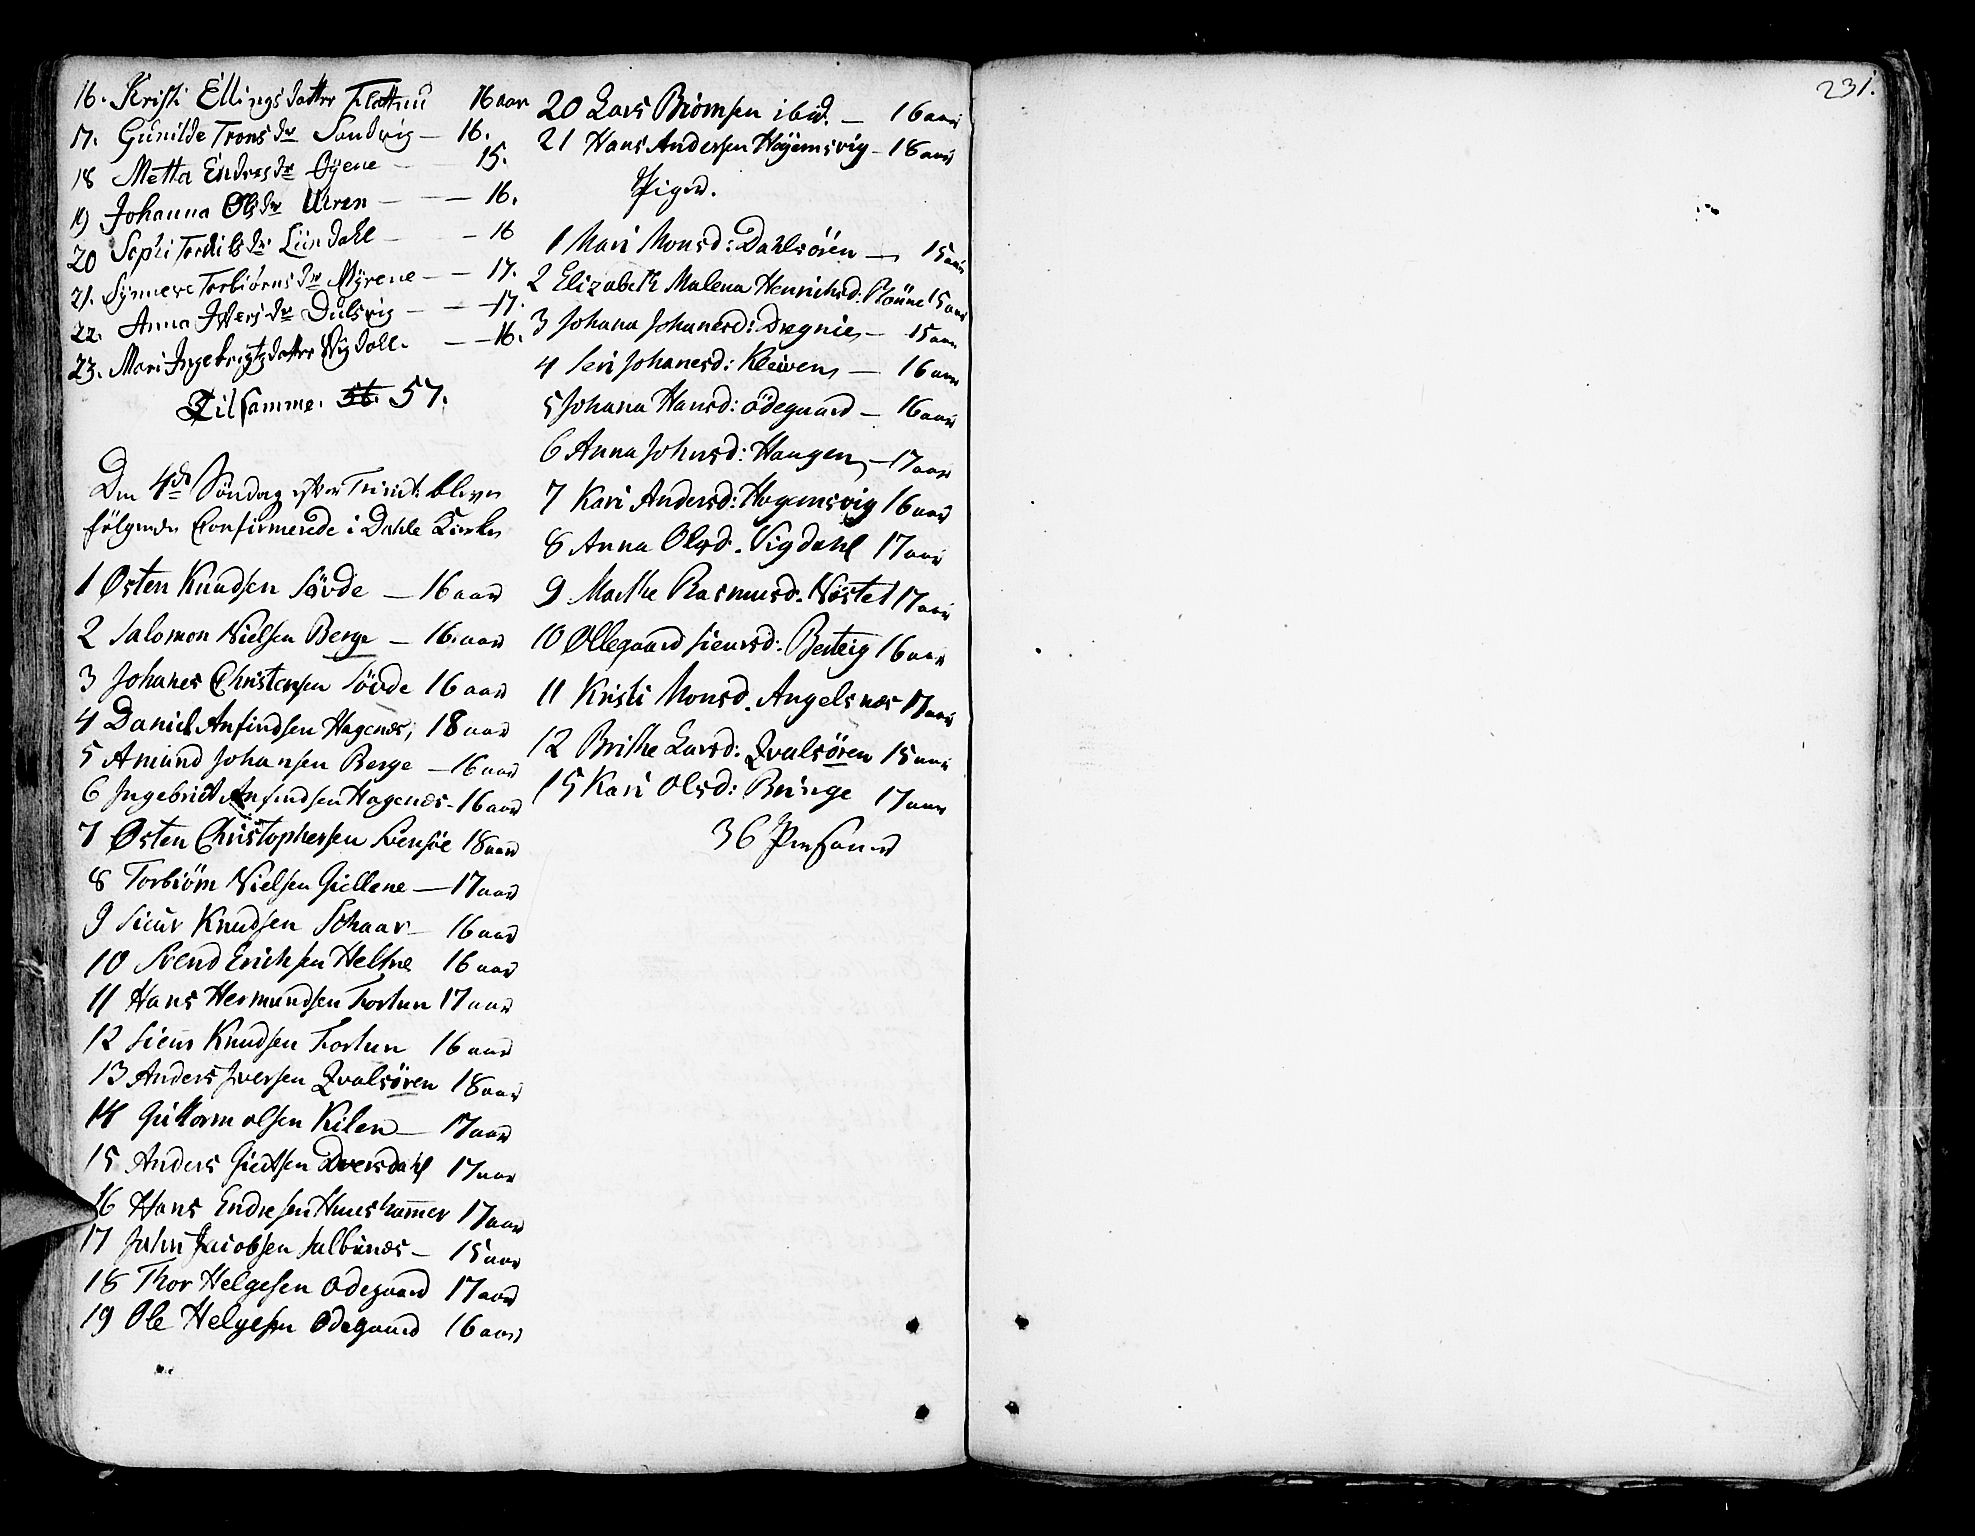 16. Kristi Ellingsdatter Flattun 16 aar
17. Gunilde Tronsdr Sandvig — 16.
18 Metta Endresdr Øyene — 15.
19 Johanna Olsdr Uren — — 16.
20 Sophi Torkilsdr Lundahl — — 16
21. Synneve Torbiørnsdr Myrene — — 17.
22. Anna Iversdr Dulsvig — — 17.
23. Mari Ingebrigtsdatter Vigdall. — — 16.
Tilsamme. 56. 57.
Den 4de Söndag efter Trinit: bleve
fölgende Confirmerede i Dahle Kirke
1 Østen Knudsen Sövde — 16 aar
2 Salomon Nielsen Berge — 16. aar
3 Johanes Christensen Sövde 16 aar
4 Daniel Anfindsen Hagenæs, 18 aar
5 Amund Johansen Berge — 16 aar
6 Ingebrict Anfindsen Hagenæs — 16 aar
7 Østen Christophersen Svensöe 18 aar
8 Torbiörn Nielsen Giellene — 17 aar
9 Sieur Knudsen Schaar — 16 aar
10 Svend Erichsen Heltne 16 aar
11 Hans Hermundsen Fortun 17 aar
12 Sieur Knudsen Fortun 16 aar
13 Anders Iversen Qvalsören 18 aar
14 Guttorm olsen Kilen — 17 aar
15 Anders Giertsen Dversdahl 17 aar
16 Hans Endresen Huushammer 17 aar
17 John Jacobsen Salbunæs — 15 aar
18 Thor Helgesen Odegaard 17 aar
19 Ole Helgesen Odegaard 16 aar
20 Lars Biörnsen ibid. — 16 aar
21 Hans Andersen Höyemsvig — 18 aar
Piger.
1 Mari Monsd: Dahlsören — 15 aar
2 Elizabeth Malena Henrichsd: 15 aar
3 Johana Johanesd: Drægnie — 15 aar
4 Seri Johanesd: Kleiven — 16 aar
5 Johana Hansd: ödegaard — 16 aar
6 Anna Johnsd: Haugen — 17 aar
7 Kari Andersd: Hoyemsvig 16 aar
8 Anna Olsd. Vigdahl 17 aar
9 Marthe Rasmusd. Nöstel 17 aar
10 Ollegaard Sieursd: Berteig 16 aar
11 Kristi Monsd. Angelsnæs 17 aar
12 Brithe Larsd: Qvalsören 15 aar
15 Kari Olsd: Bringe 17 aar
36 Persaner
231.